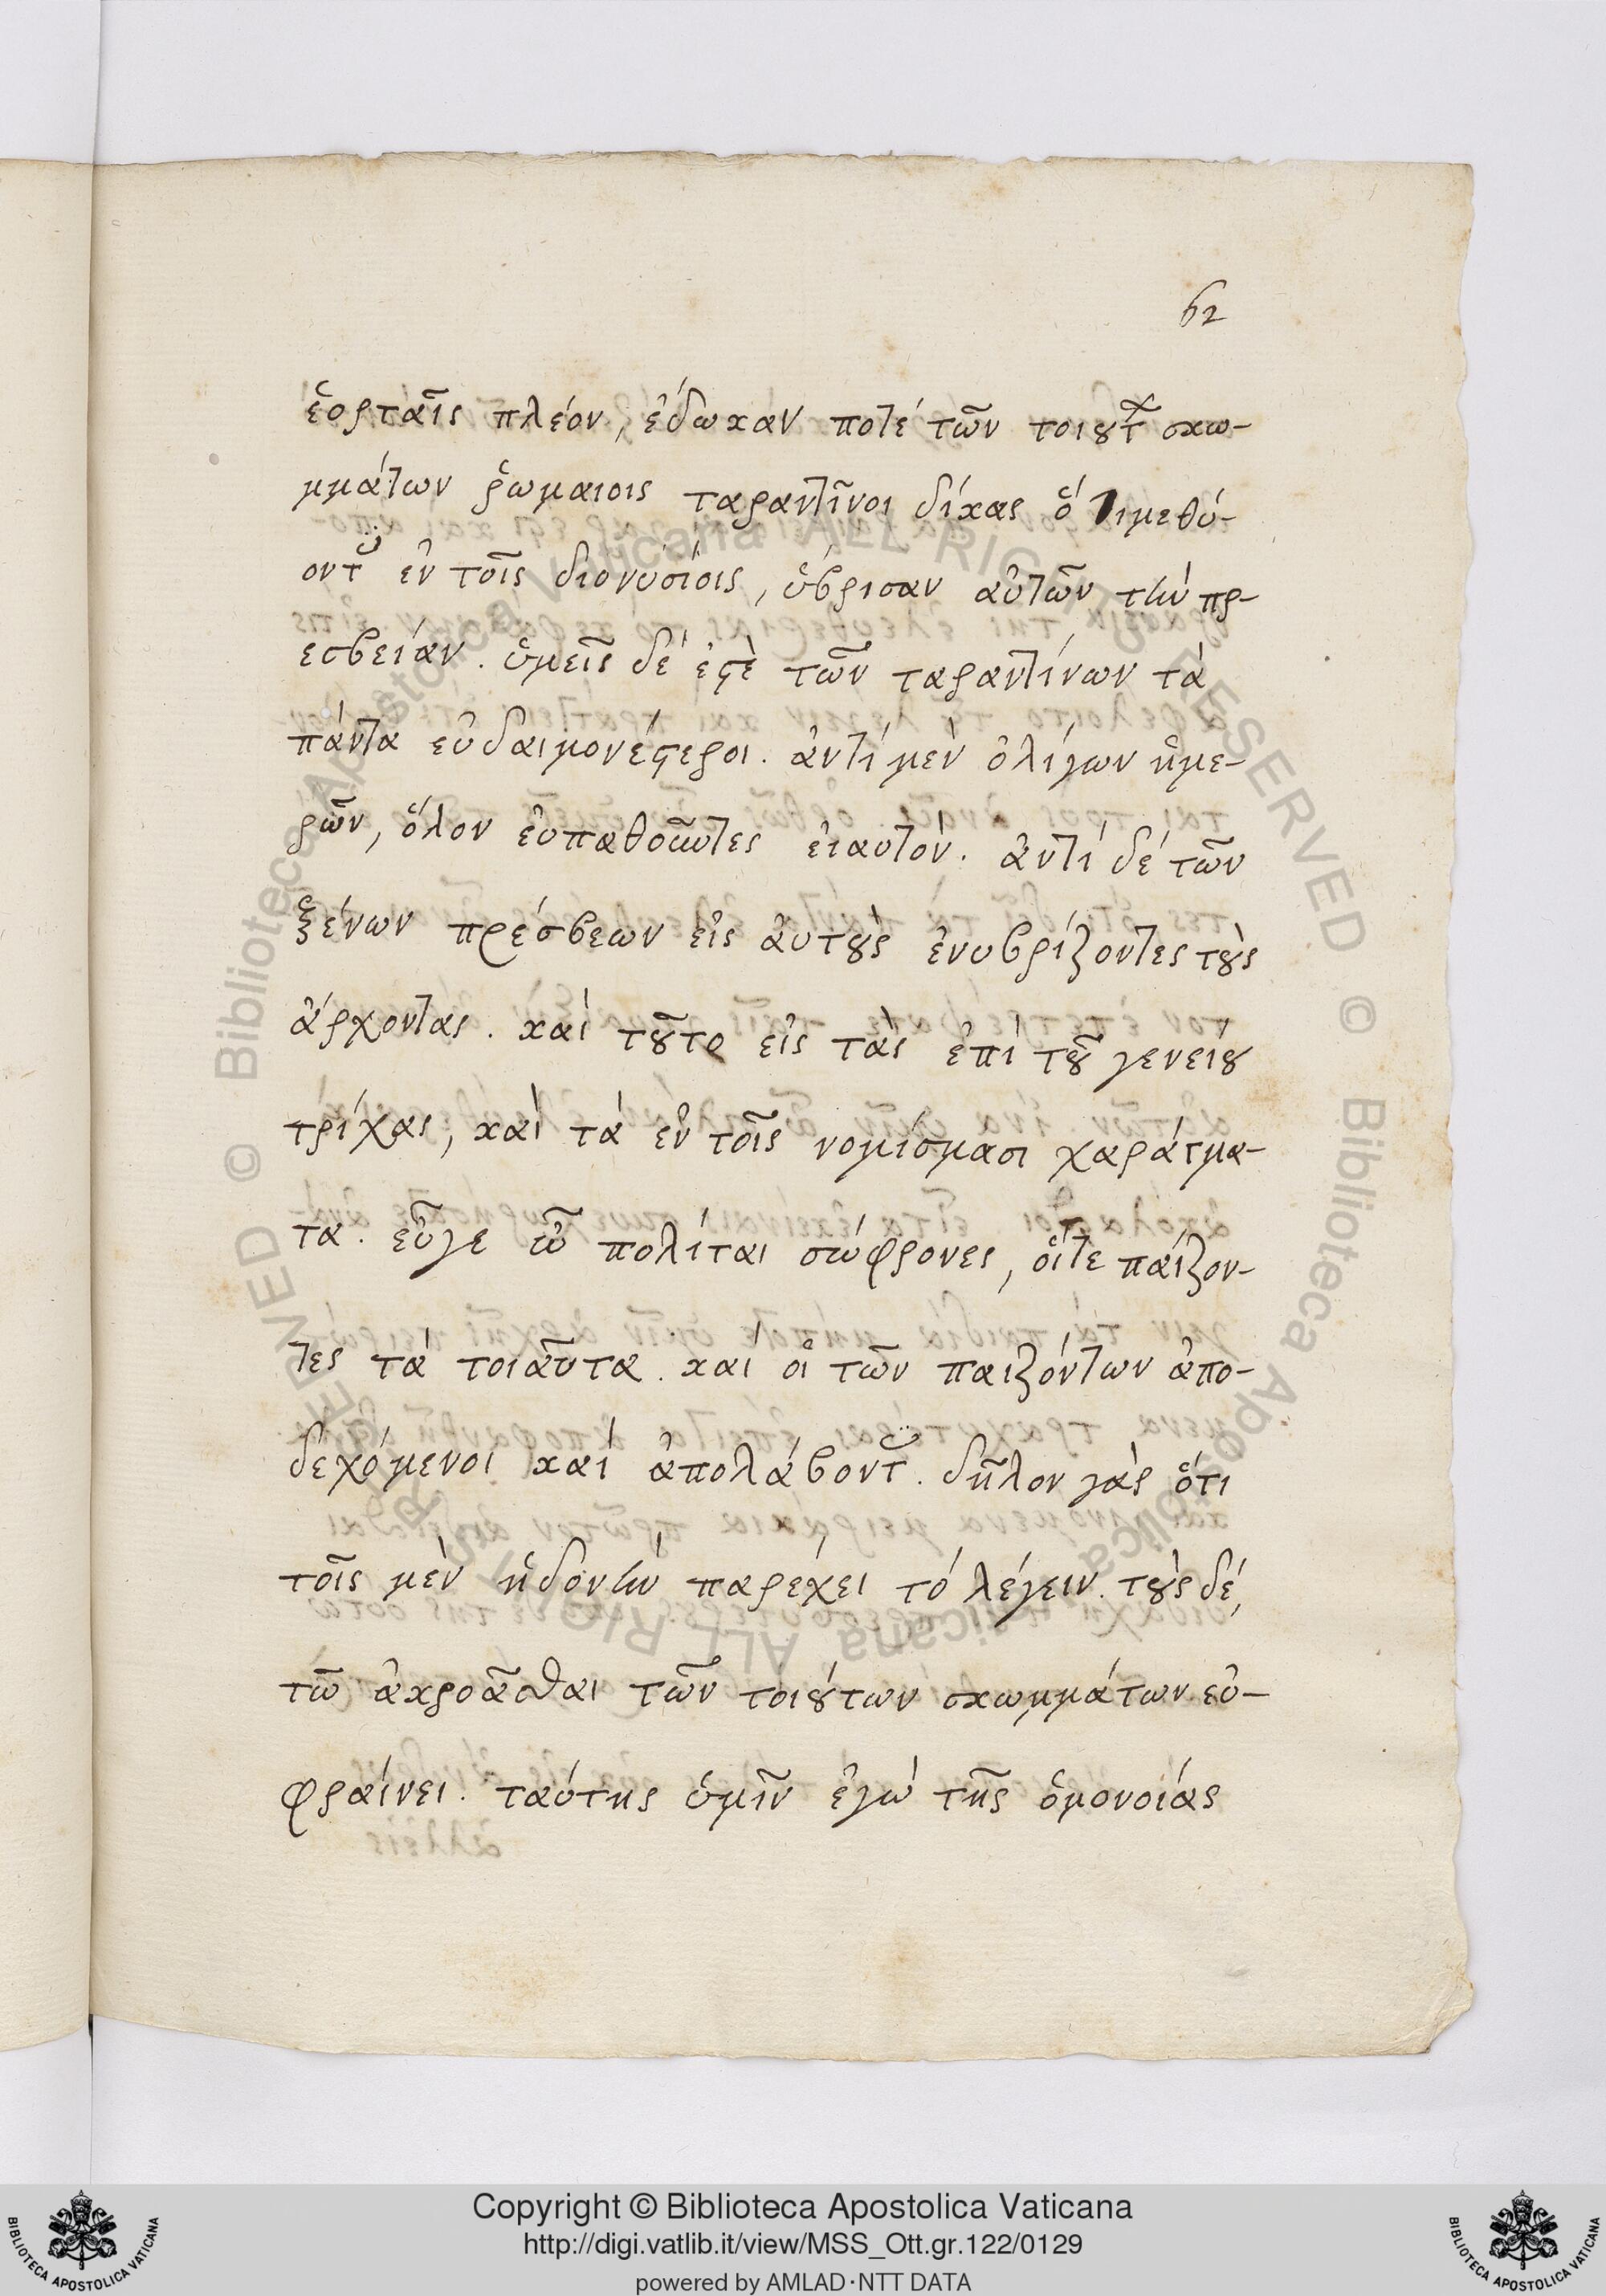 62
ἑορταῖς πλέον, ἔδωκαν ποτέ τῶν τοιȣτ σκω-
μμάτων ῥωμαιοις ταραντῖνοι δίκας ὅτι μεθύ-
οντ ἐν τοῖς διονυσίοις, ὕβρισαν αὐτῶν τὴν πρ-
εσβείαν. ὑμεῖς δέ ἐϛὲ τῶν ταραντίνων τὰ
πάντα εὐδαιμονέϛεροι. ἀντί μὲν ὀλίγων ἡμε-
ρῶν, ὅλον εὐπαθοῦντες ἐιαυτὸν. ἀντί δέ τῶν
ξένων πρέσβεων εἰς ἀυτȣ̀ς ἐνυβρίζοντες τȣ̀ς
ἄρχοντας. καὶ τȣ͂το εἰς τὰς ἐπὶ τȣ͂ γενείȣ
τρίχας, καὶ τὰ ἐν τοῖς νομίσμασι χαράγμα-
τα. εὖγε ὦ πολίται σώφρονες, οἵτε παίζον-
τες τὰ τοιαῦτα. καὶ οἱ τῶν παιζόντων ἀπο-
δεχόμενοι καὶ ἀπολάβοντ. δῆλον γὰρ ὅτι
τοῖς μὲν ἡδονὴν παρέχει τό λέγειν. τȣ̀ς δέ,
τῶ ἀκροᾶσθαι τῶν τοιȣ́των σκωμμάτων εὐ-
φραίνει. ταύτης ὑμῖν ἐγὼ τῆς ὁμονοίας
Copyright © Biblioteca Apostolica Vaticana
http://digi.vatlib.it/view/MSS_Ott.gr.122/0129
powered by AMLAD·NTT DATA
BIBLIOTECA APOSTOLICA VATICANA
BIBLIOTECA APOSTOLICA VATICANA